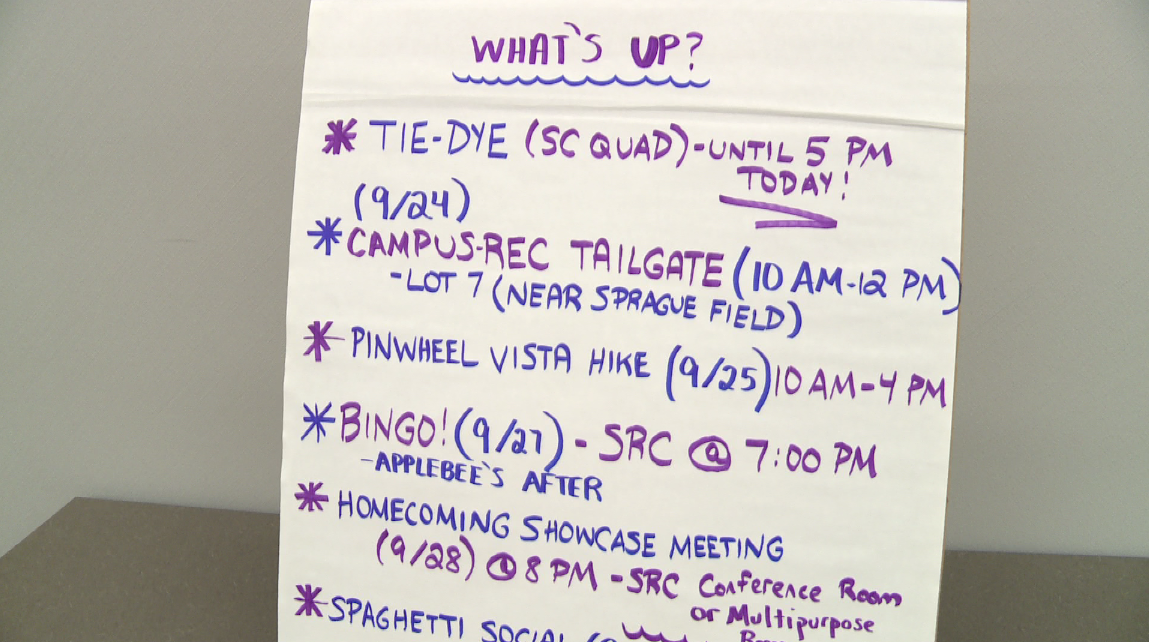 WHAT'S UP?
* TIE-DYE (SC QUAD)-UNTIL 5 PM
TODAY!
(9/24)
* CAMPUS-REC TAILGATE (10 AM-12 PM)
-LOT 7 (NEAR SPRAGUE FIELD)
* PINWHEEL VISTA HIKE (9/25) 10 AM-4 PM
* BINGO! (9/27) - SRC @ 7:00 PM
-APPLEBEE'S AFTER
* HOMECOMING SHOWCASE MEETING
(9/28) @ 8 PM -SRC Conference Room
or Multipurpose
* SPAGHETTI SOCIAL